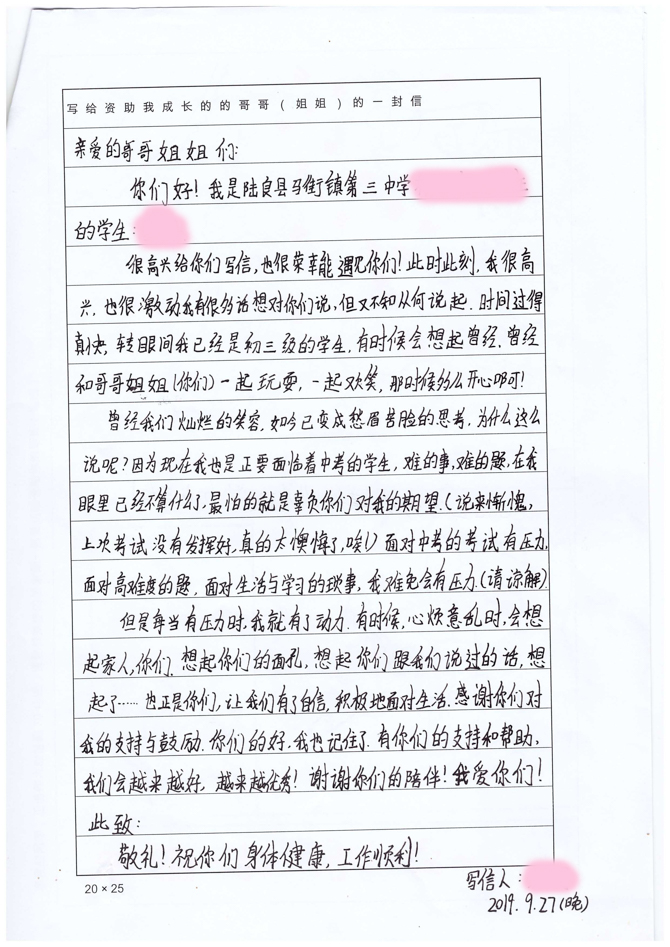 写给资助我成长的的哥哥(姐姐)的一封信
亲爱的哥哥姐姐们:
你们好!我是陆良县马街镇第三中学
的学生:
很高兴给你们写信,也很荣幸能遇见你们!此时此刻,我很高
兴,也很激动我有很多话想对你们说,但又不知从何说起.时间过得
真快,转眼间我已经是初三级的学生,有时候会想起曾经,曾经
和哥哥姐姐(你们)一起玩耍,一起欢笑,那时候多么开心啊可!
曾经我们灿烂的笑容,如今已变成愁眉苦脸的思考,为什么这么
说呢?因为现在我也是正要面临着中考的学生,难的事,难的题,在我
眼里已经不算什么了,最怕的就是辜负你们对我的期望.(说来惭愧,
上次考试没有发挥好,真的太懊悔了,唉!)面对中考的考试有压力,
面对高难度的题,面对生活与学习的琐事,我难免会有压力.(请谅解)
但是每当有压力时,我就有了动力.有时候,心烦意乱时,会想
起家人,你们.想起你们的面孔,想起你们跟我们说过的话,想
起了……也正是你们,让我们有了自信,积极地面对生活.感谢你们对
我的支持与鼓励.你们的好,我也记住了.有你们的支持和帮助,
我们会越来越好,越来越优秀!谢谢你们的陪伴!我爱你们!
此致:
敬礼!祝你们身体健康,工作顺利!
写信人:
20×25
2019.9.27(晚)